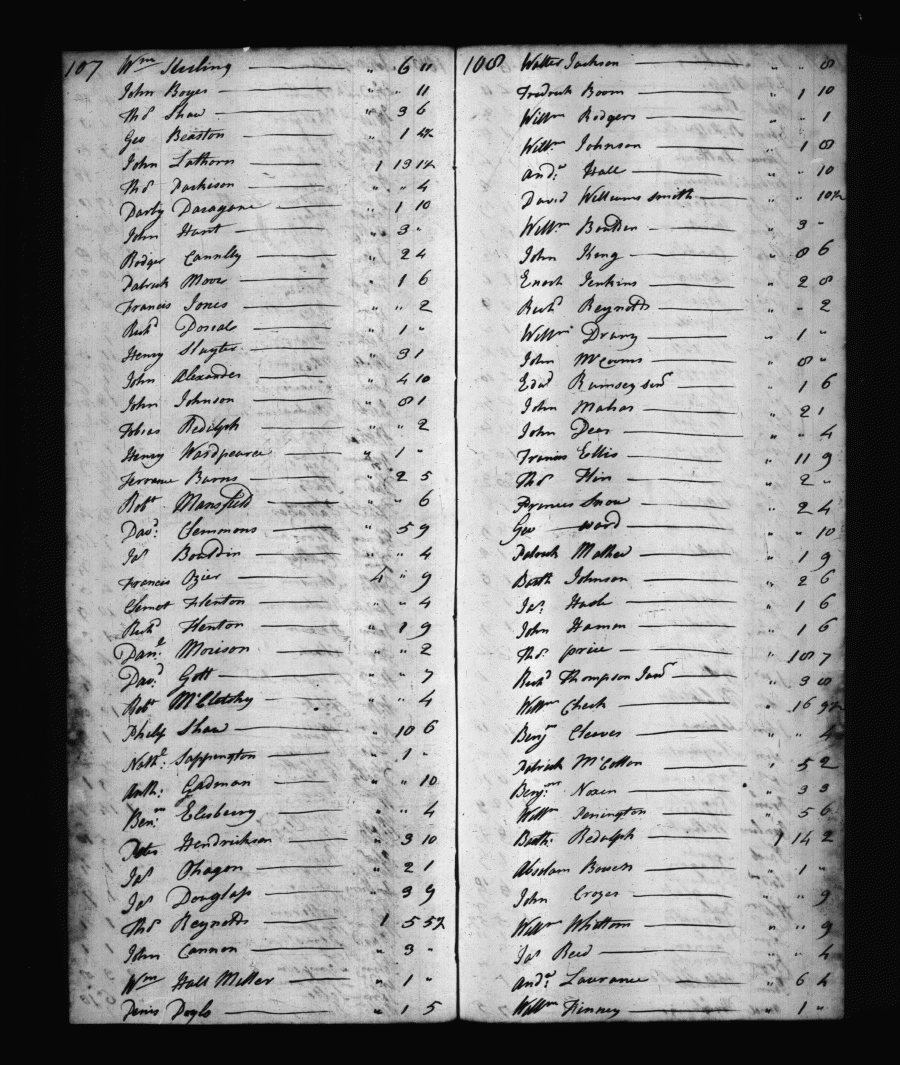 107 Wm Sterling " 6 "
John Boyer " " 11
Thos Shaw " 3 6
Geo Beaston " 1
John Lathorn 1 13
Thos Dackison " " 4
Darby " 1 10
John Hart " 3 "
Rodger Connlly " 2 4
Patrick Moore " 1 6
Francis Jones " " 2
Richd " 1 "
Henry Sluyter " 3 1
John Alexander " 4 10
John Johnson " 8 1
Tobias Redulph " " 2
Henry Wardpearce " 1 "
Terrance Burns " 2 5
Robt Mansfield " " 6
Davd: Clemmons " 5 9
Jas Bouldin " " 4
Francis Ozier 4 " 9
Clemet Flenton " " 4
Richd Flenton " 1 9
Danl Morison " " 2
Davd Gott " " 7
Robt " " 4
Philip Shaw " 10 6
Nathl: Sappington " 1 "
Anth: Gadman " " 10
Benm: Elesberry " " 4
Peter Hendrickson " 3 10
Jas Ohagon " 2 1
Jas Douglass " 3 9
Thos Reynolds 1 5 5½
John Cannon " 3 "
Wm Hall Miller " 1 "
Denis Doyle " 1 5
108 Walter Jackson " " 8
Fredrick Boom " 1 10
Willm Rodgers " " 1
Willm Johnson " 1 8
Andw Hall " " 10
David Williams smith " " 10½
Willm Boulden " 3 "
John King " 8 6
Enoch Jenkins " 2 8
Richd Reynolds " " 2
Willm Drany " 1 "
John " 8 "
Edwd Rumsey senr " 1 6
John Mahar " 2 1
John Dear " " 4
Francis Ellis " 11 9
Thos " 2 "
Frances Snow " 2 4
Geo ward " " 10
Patrick Mather " 1 9
Barth Johnson " 2 6
Jas: Hack " 1 6
John Haman " 1 6
Thos price " 18 7
Richd Thompson Junr " 3 8
Willm Cheek " 16 9½
Benjn Cleaves " " 4
Patrick McCotton " 5 2
Benjmn: Noxen " 3 3
Willm Penington " 5 6
Barth: Redulph 1 14 2
Absolam Bowen " 1 "
John " " 9
Willm Whittom " " 9
Jas Reed " " 4
Andw Lawrance " 6 4
Willm Kinney " 1 "